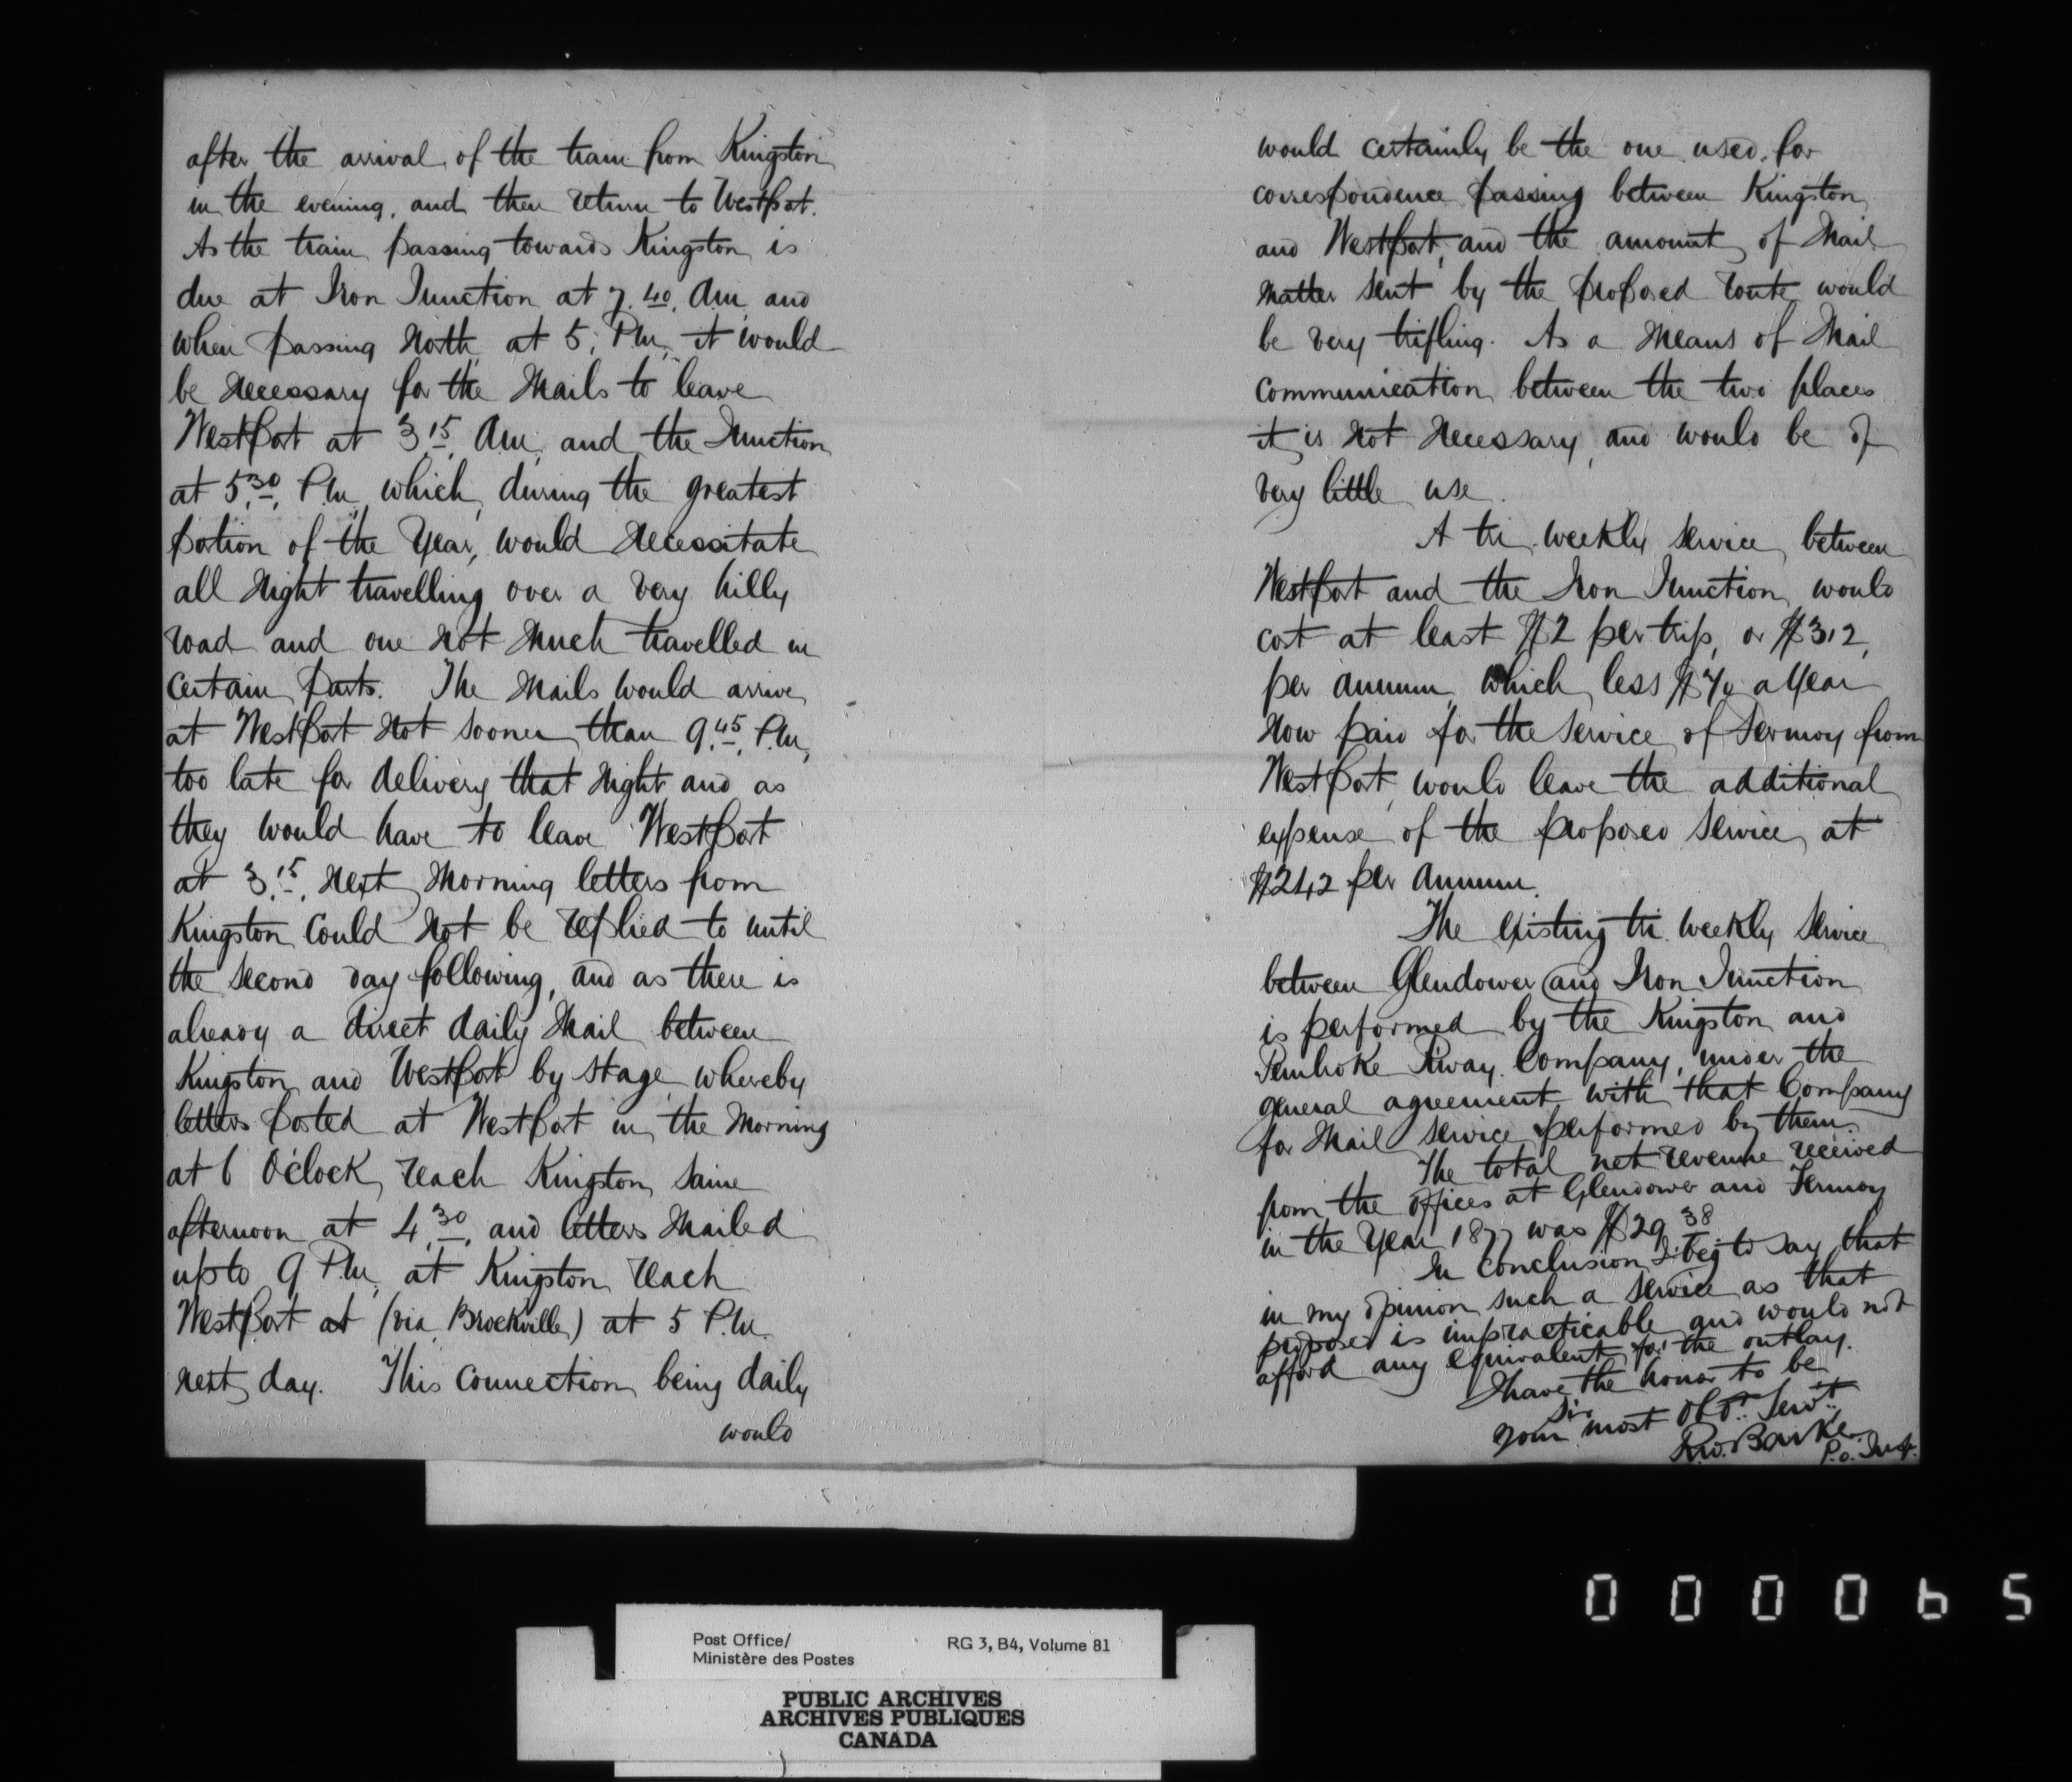 after the arrival of the train from Kingston
in the evening, and then return to Westport.
As the train passing towards Kingston is
due at Iron Junction at 7.40. Am, and
when passing North at 5, P.m, it would
be necessary for the Mails to leave
Westport at 3.15. Am, and the Junction
at 5.30. P.m, which, during the greatest
portion of the Year, would necessitate
all night travelling over a very hilly
road and one not much travelled in
certain parts. The Mails would arrive
at Westport not sooner than 9.45. P.m,
too late for delivery that Night and as
they would have to leave Westport
at 3.15. next morning letters from
Kingston could not be replied to until
the second day following, and as there is
already a direct daily Mail between
Kingston and Westport by stage whereby
letters posted at Westport in the morning
at 6 O'clock, reach Kingston same
afternoon at 4.30. and letters mailed
up to 9 P.m, at Kingston reach
Westport at (via Brockville) at 5 P.m.
next day. This connection being daily
would
would certainly be the one used for
correspondence passing between Kingston
and Westport, and the amount of Mail
matter sent by the proposed route would
be very trifling. As a means of Mail
communication between the two places
it is not necessary, and would be of
very little use.
A tri-weekly service between
Westport and the Iron Junction would
cost at least $2 per trip, or $312,
per annum, which, less $70 a Year
now paid for the service of Fermoy from
Westport, would leave the additional
expense of the proposed service at
$242 per annum.
The existing tri-weekly service
between Glendower and Iron Junction
is performed by the Kingston and
Pembroke R'way. Company, under the
general agreement with that Company
for Mail service performed by them.
The total net revenue received
from the offices at Glendower and Fermoy
in the Year 1877 was $29.38
In conclusion I beg to say that
in my opinion such a service as that
proposed is impracticable and would not
afford any equivalent for the outlay.
I have the honor to be
Sir
Your most obt. Servt.
R.W. Barker
P.O. Insp.
000065
Post Office/ RG 3, B4, Volume 81
Ministère des Postes
PUBLIC ARCHIVES
ARCHIVES PUBLIQUES
CANADA